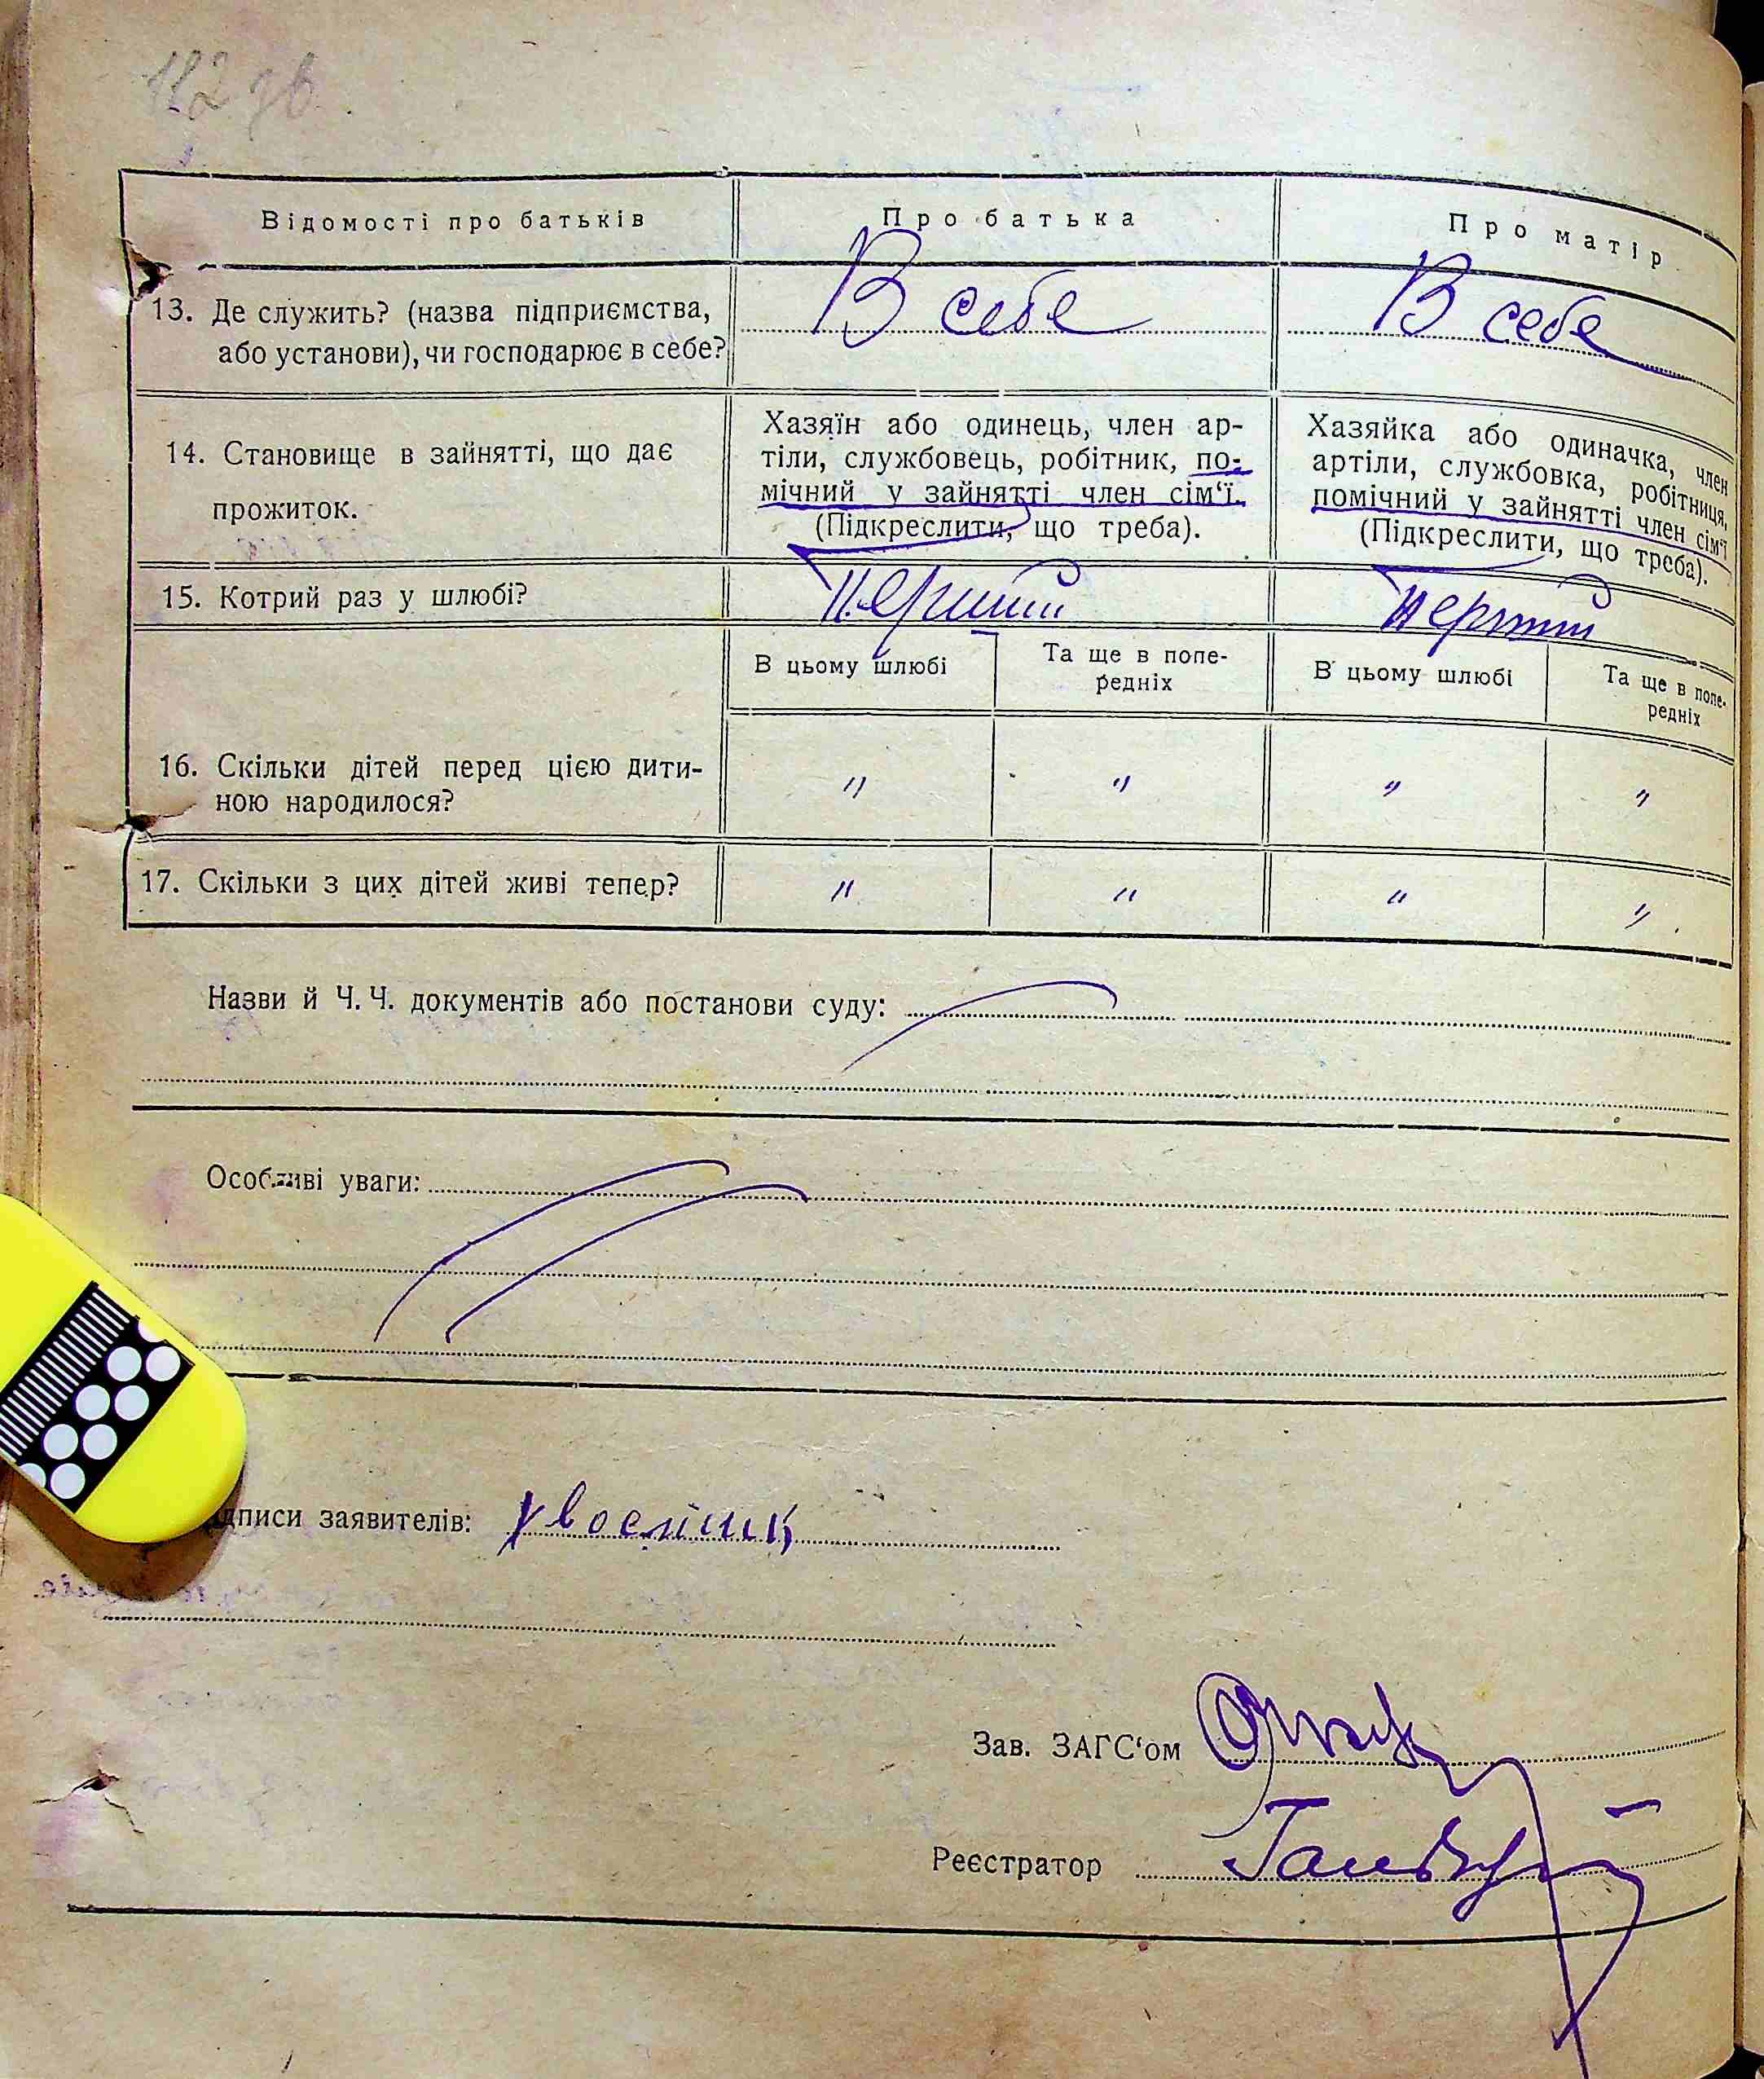 182 зв.
Відомості про батьків
Про батька
Про матір
13. Де служить? (назва підприємства,
або установи), чи господарює в себе?
В себе
В себе
14. Становище в зайнятті, що дає
прожиток.
Хазяїн або одинець, член ар-
тіли, службовець, робітник, по-
мічний у зайнятті член сім'ї.
(Підкреслити, що треба).
Хазяйка або одиначка, член
артіли, службовка, робітниця,
помічний у зайнятті член сім'ї
(Підкреслити, що треба).
15. Котрий раз у шлюбі?
Перший
Перший
В цьому шлюбі
Та ще в попе-
редніх
В цьому шлюбі
Та ще в попе-
редніх
16. Скільки дітей перед цією дити-
ною народилося?
"
"
"
"
17. Скільки з цих дітей живі тепер?
"
"
"
"
Назви й Ч. Ч. документів або постанови суду:
Особливі уваги:
дписи заявителів:
Зав. ЗАГС'ом
Реєстратор